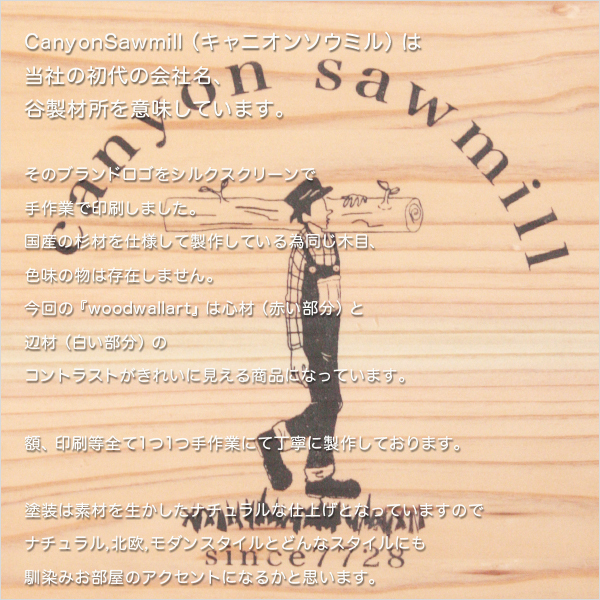 canyon sawmill
CanyonSawmill（キャニオンソウミル）は
当社の初代の会社名、
谷製材所を意味しています。
そのブランドロゴをシルクスクリーンで
手作業で印刷しました。
国産の杉材を仕様して製作している為同じ木目、
色味の物は存在しません。
今回の『woodwallart』は心材（赤い部分）と
辺材（白い部分）の
コントラストがきれいに見える商品になっています。
額、印刷等全て1つ1つ手作業にて丁寧に製作しております。
塗装は素材を生かしたナチュラルな仕上げとなっていますので
ナチュラル,北欧,モダンスタイルとどんなスタイルにも
馴染みお部屋のアクセントになるかと思います。
since1728